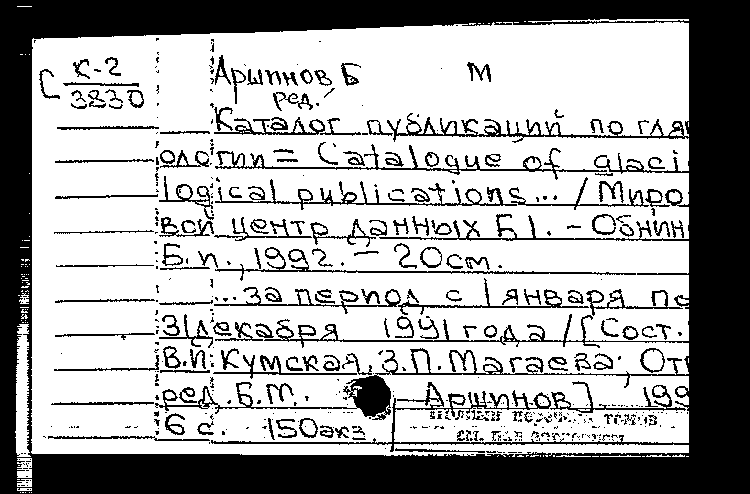 С К-2
3830
Аршинов Б М
ред.
Каталог публикаций по гля
ологии = Catalogue of glaci
logical publications... / Миро
вой центр данных Б1. - Обнин
Б.и., 1992. - 20см.
...за период с 1 января по
31 декабря 1991 года / [Сост.
В.И. Кумская, З.П. Магаева; Отв
ред. Б.М. Аршинов] 199
6 с. 150экз.
томов
см. на обороте